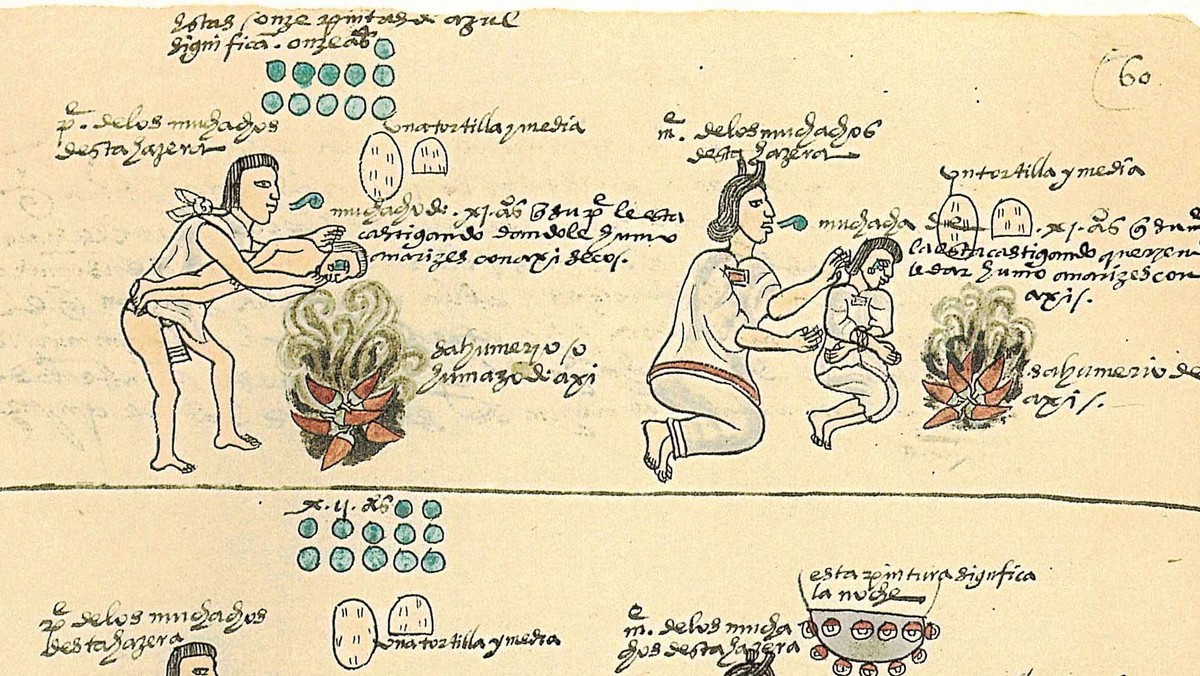 Estas onze pintas de azul
significa. onze aºs
60
pᵉ. de los muchachos
desta hazera
una tortilla y media
muchacho de .xj. aºs q̃ su pᵉ le esta
castigando dandole humo
a narizes con axi secos.
sahumerio o
humazo de axi
mᵉ. de los muchachos
desta hazera
un tortilla y media
muchacha de .xj. aºs q̃ su m
la esta castigando
le dar humo a narizes con
axis.
sahumerio de
axis.
x.ij. aºs
pᵉ. de los muchachos
desta hazera
una tortilla y media
esta pintura significa
la noche
mᵉ. de los mucha
chos desta hazera